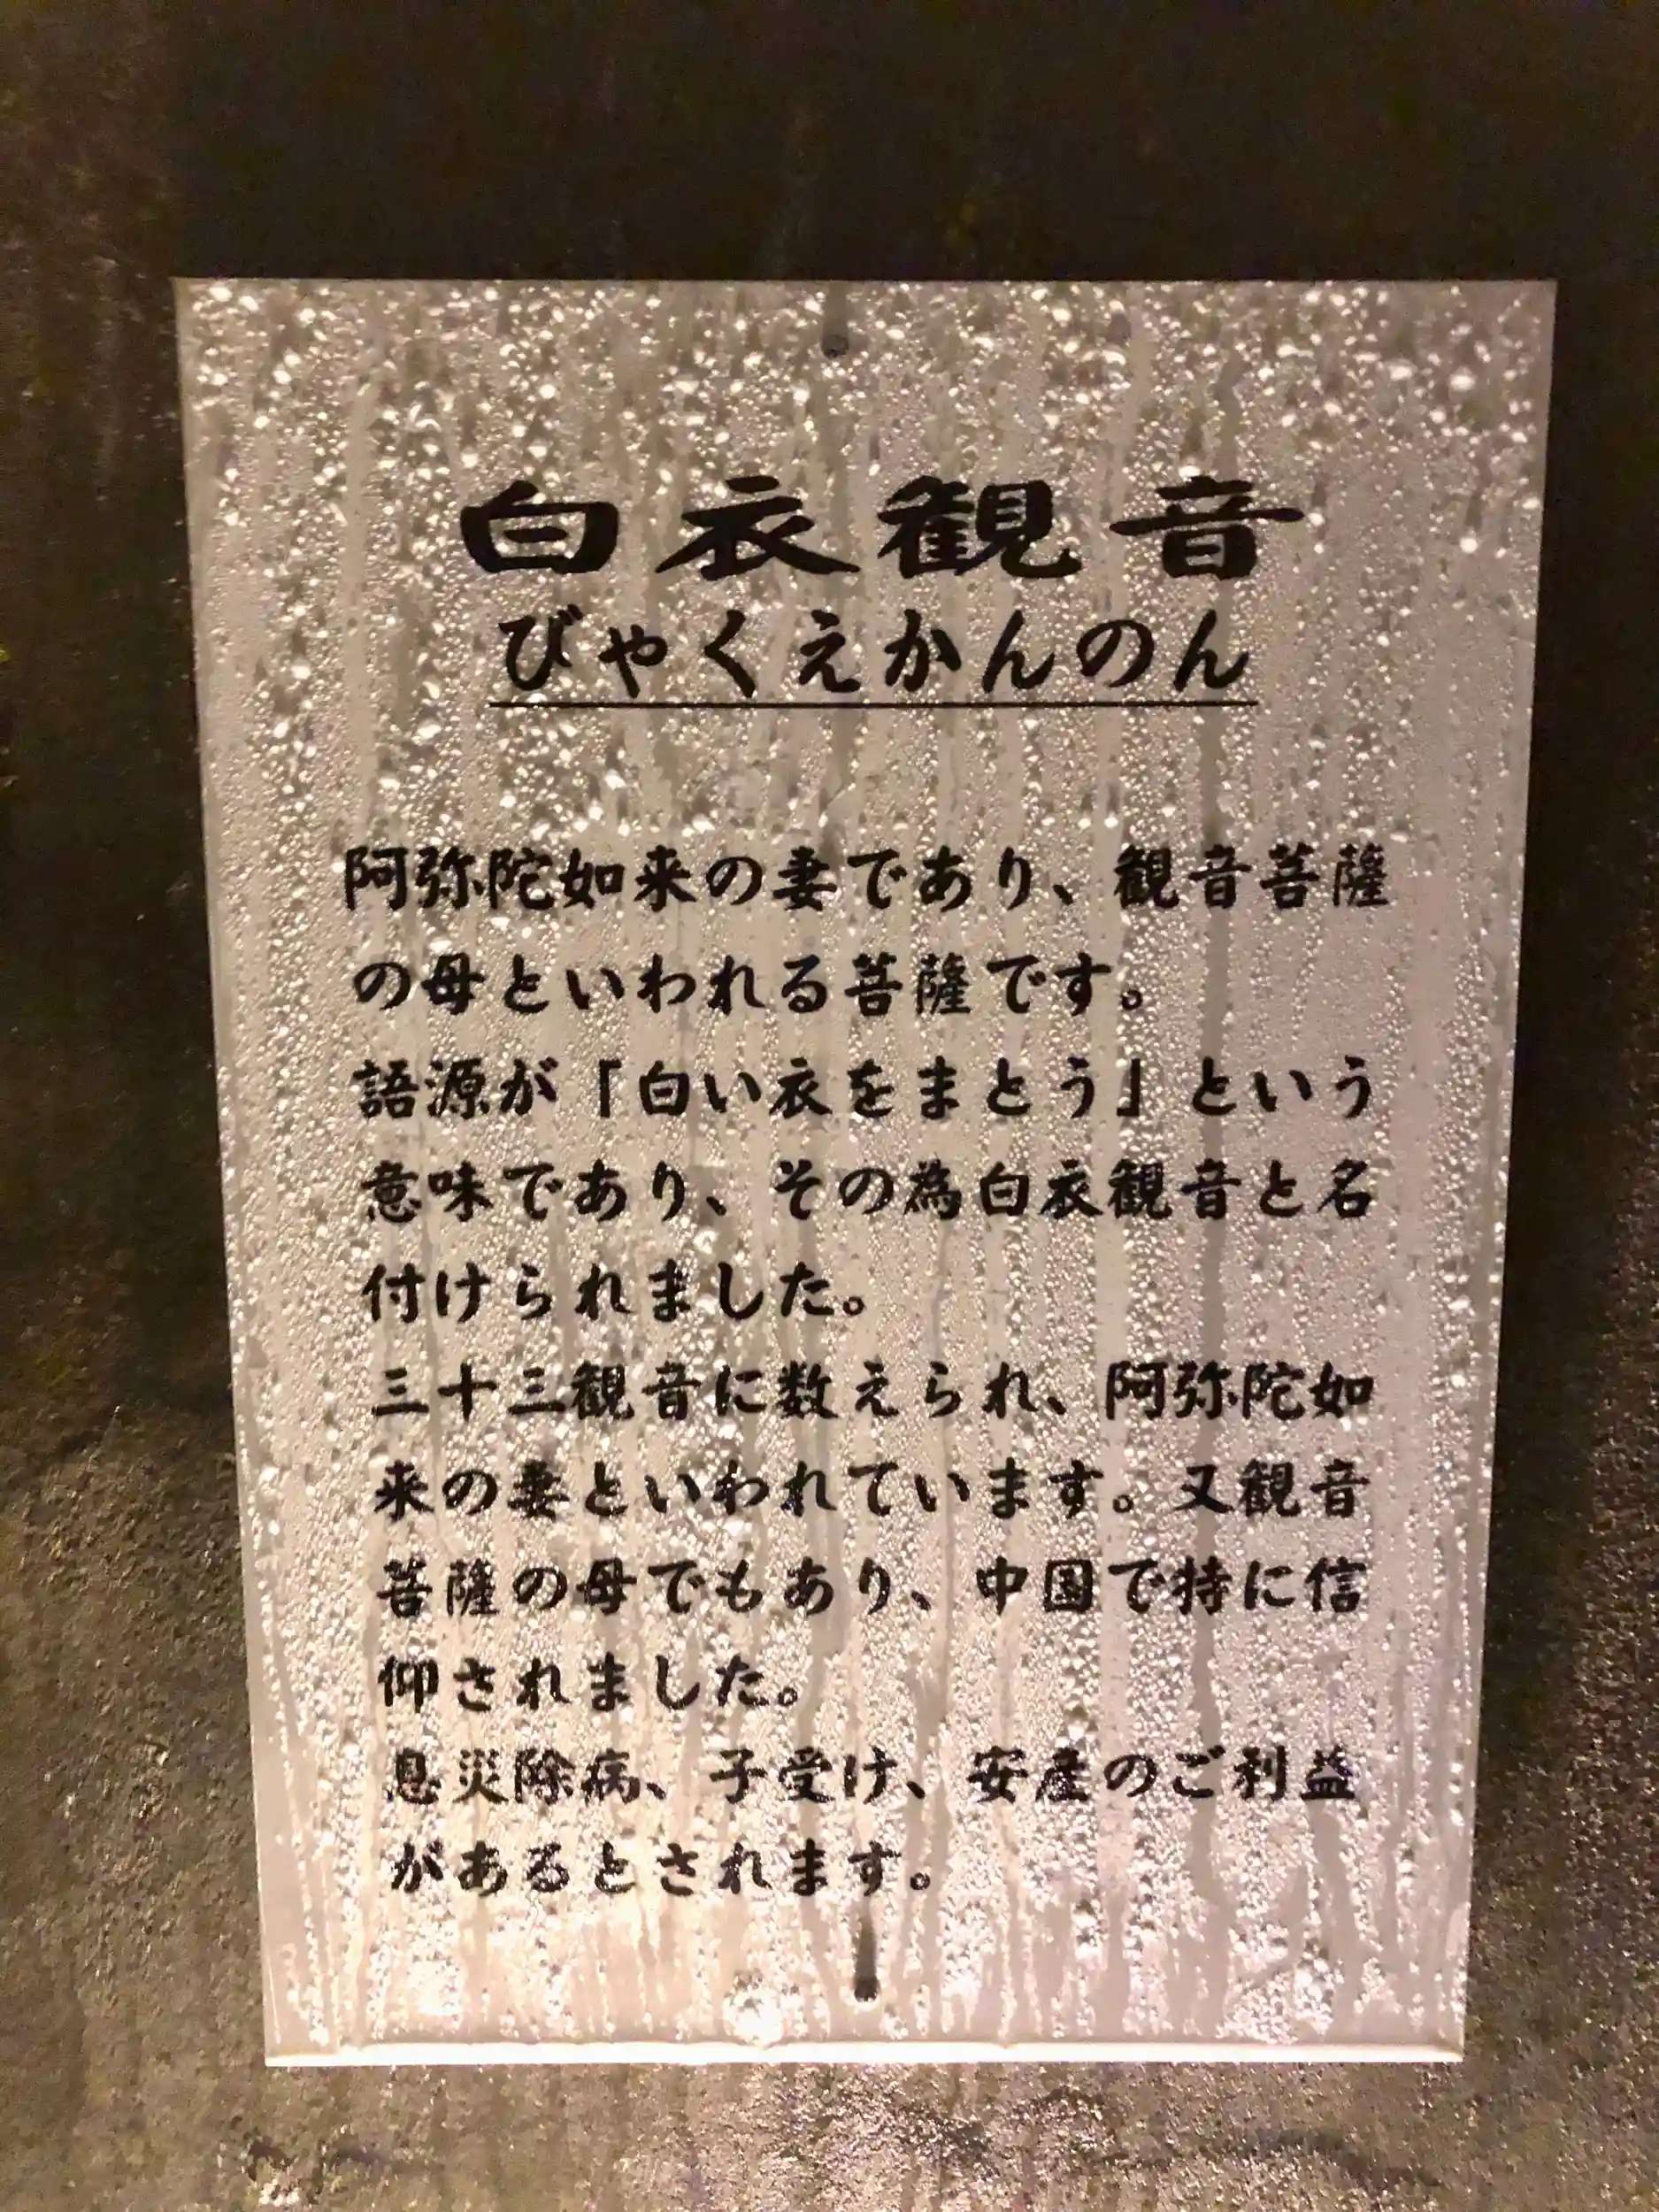 白衣観音
びゃくえかんのん
阿弥陀如来の妻であり、観音菩薩
の母といわれる菩薩です。
語源が「白い衣をまとう」という
意味であり、その為白衣観音と名
付けられました。
三十三観音に数えられ、阿弥陀如
来の妻といわれています。又観音
菩薩の母でもあり、中国で特に信
仰されました。
息災除病、子受け、安産のご利益
があるとされます。